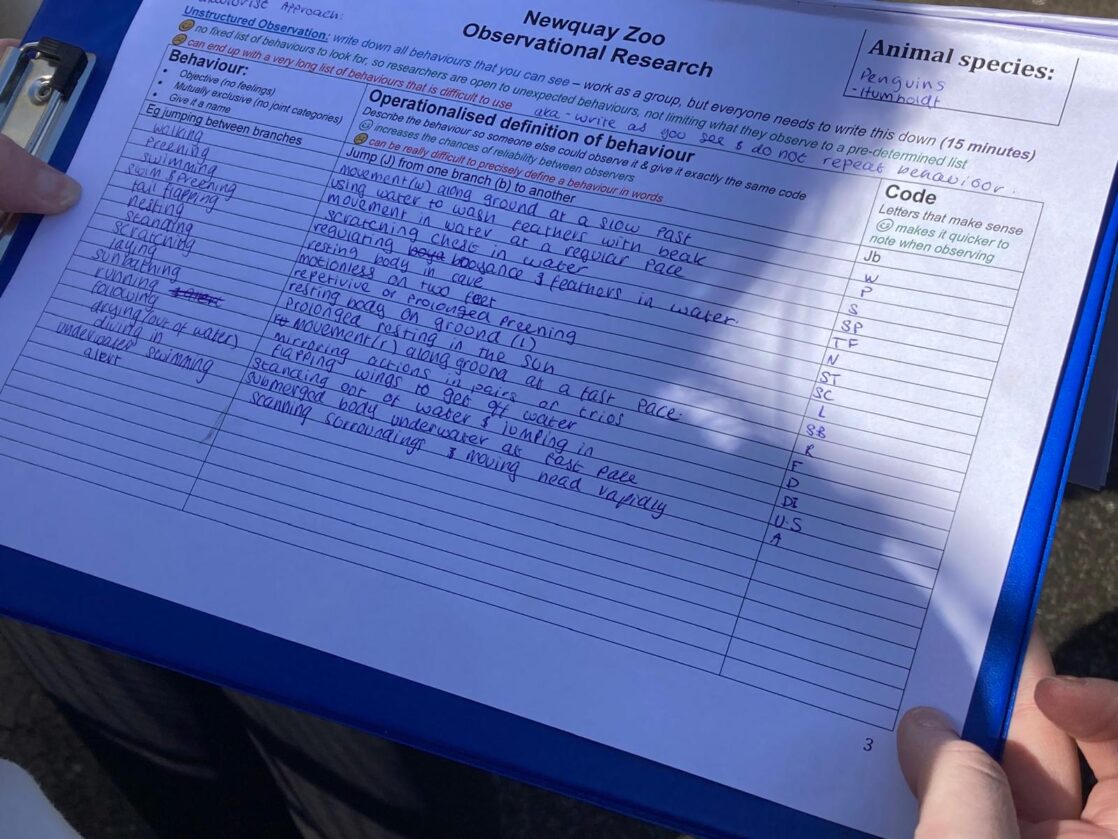 Approach:
Newquay Zoo
Observational Research
Animal species:
Penguins
- Humboldt
Unstructured Observation: write down all behaviours that you can see – work as a group, but everyone needs to write this down (15 minutes)
no fixed list of behaviours to look for, so researchers are open to unexpected behaviours, not limiting what they observe to a pre-determined list
can end up with a very long list of behaviours that is difficult to use
aka - write as you see & do not repeat behaviour.
Behaviour:
• Objective (no feelings)
• Mutually exclusive (no joint categories)
• Give it a name
Operationalised definition of behaviour
Describe the behaviour so someone else could observe it & give it exactly the same code
increases the chances of reliability between observers
can be really difficult to precisely define a behaviour in words
Code
Letters that make sense
makes it quicker to
note when observing
Eg jumping between branches Jump (J) from one branch (b) to another Jb
walking movement(w) along ground at a slow past W
preening using water to wash feathers with beak P
swimming movement in water at a regular pace S
swim & preening scratching chest in water SP
tail flapping regulating booyance & feathers in water. TF
nesting resting body in cave N
standing motionless on two feet ST
scratching repetivive or prolonged preening SC
laying resting body on ground (L) L
sunbathing prolonged resting in the sun SB
running movement(r) along ground at a fast pace. R
following mirroring actions in pairs or trios F
drying (out of water) flapping wings to get off water D
diving in standing out of water & jumping in DI
underwater swimming submerged body underwater at fast pace U.S
alert scanning surroundings & moving head rapidly A
3